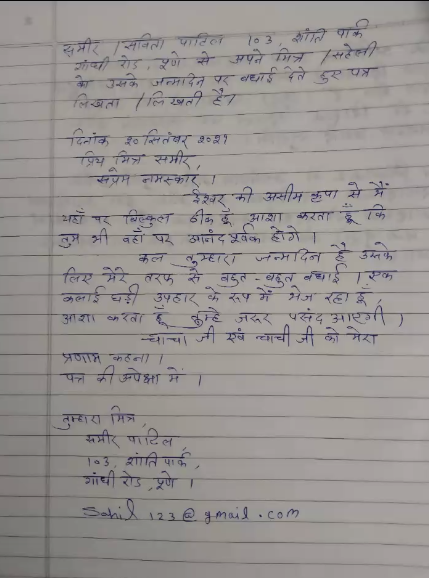 समीर / सविता पाटिल 103, शांति पार्क
गांधी रोड, पूणे से अपने मित्र / सहेली
को उसके जन्मदिन पर बधाई देते हुए पत्र
लिखता / लिखती है।
दिनांक 20 सितंबर 2021
प्रिय मित्र समीर,
सप्रेम नमस्कार।
ईश्वर की असीम कृपा से मैं
यहाँ पर बिल्कुल ठीक हूँ आशा करता हूँ कि
तुम भी वहाँ पर आनंदपूर्वक होंगे।
कल तुम्हारा जन्मदिन है उसके
लिए मेरे तरफ से बहुत-बहुत बधाई। एक
कलाई घड़ी उपहार के रूप में भेज रहा हूँ,
आशा करता हूँ तुम्हे जरूर पसंद आएगी।
चाचा जी एवं चाची जी को मेरा
प्रणाम कहना।
पत्र की अपेक्षा में।
तुम्हारा मित्र,
समीर पाटिल,
103, शांति पार्क,
गांधी रोड, पूणे।
Sahil 123@gmail.com